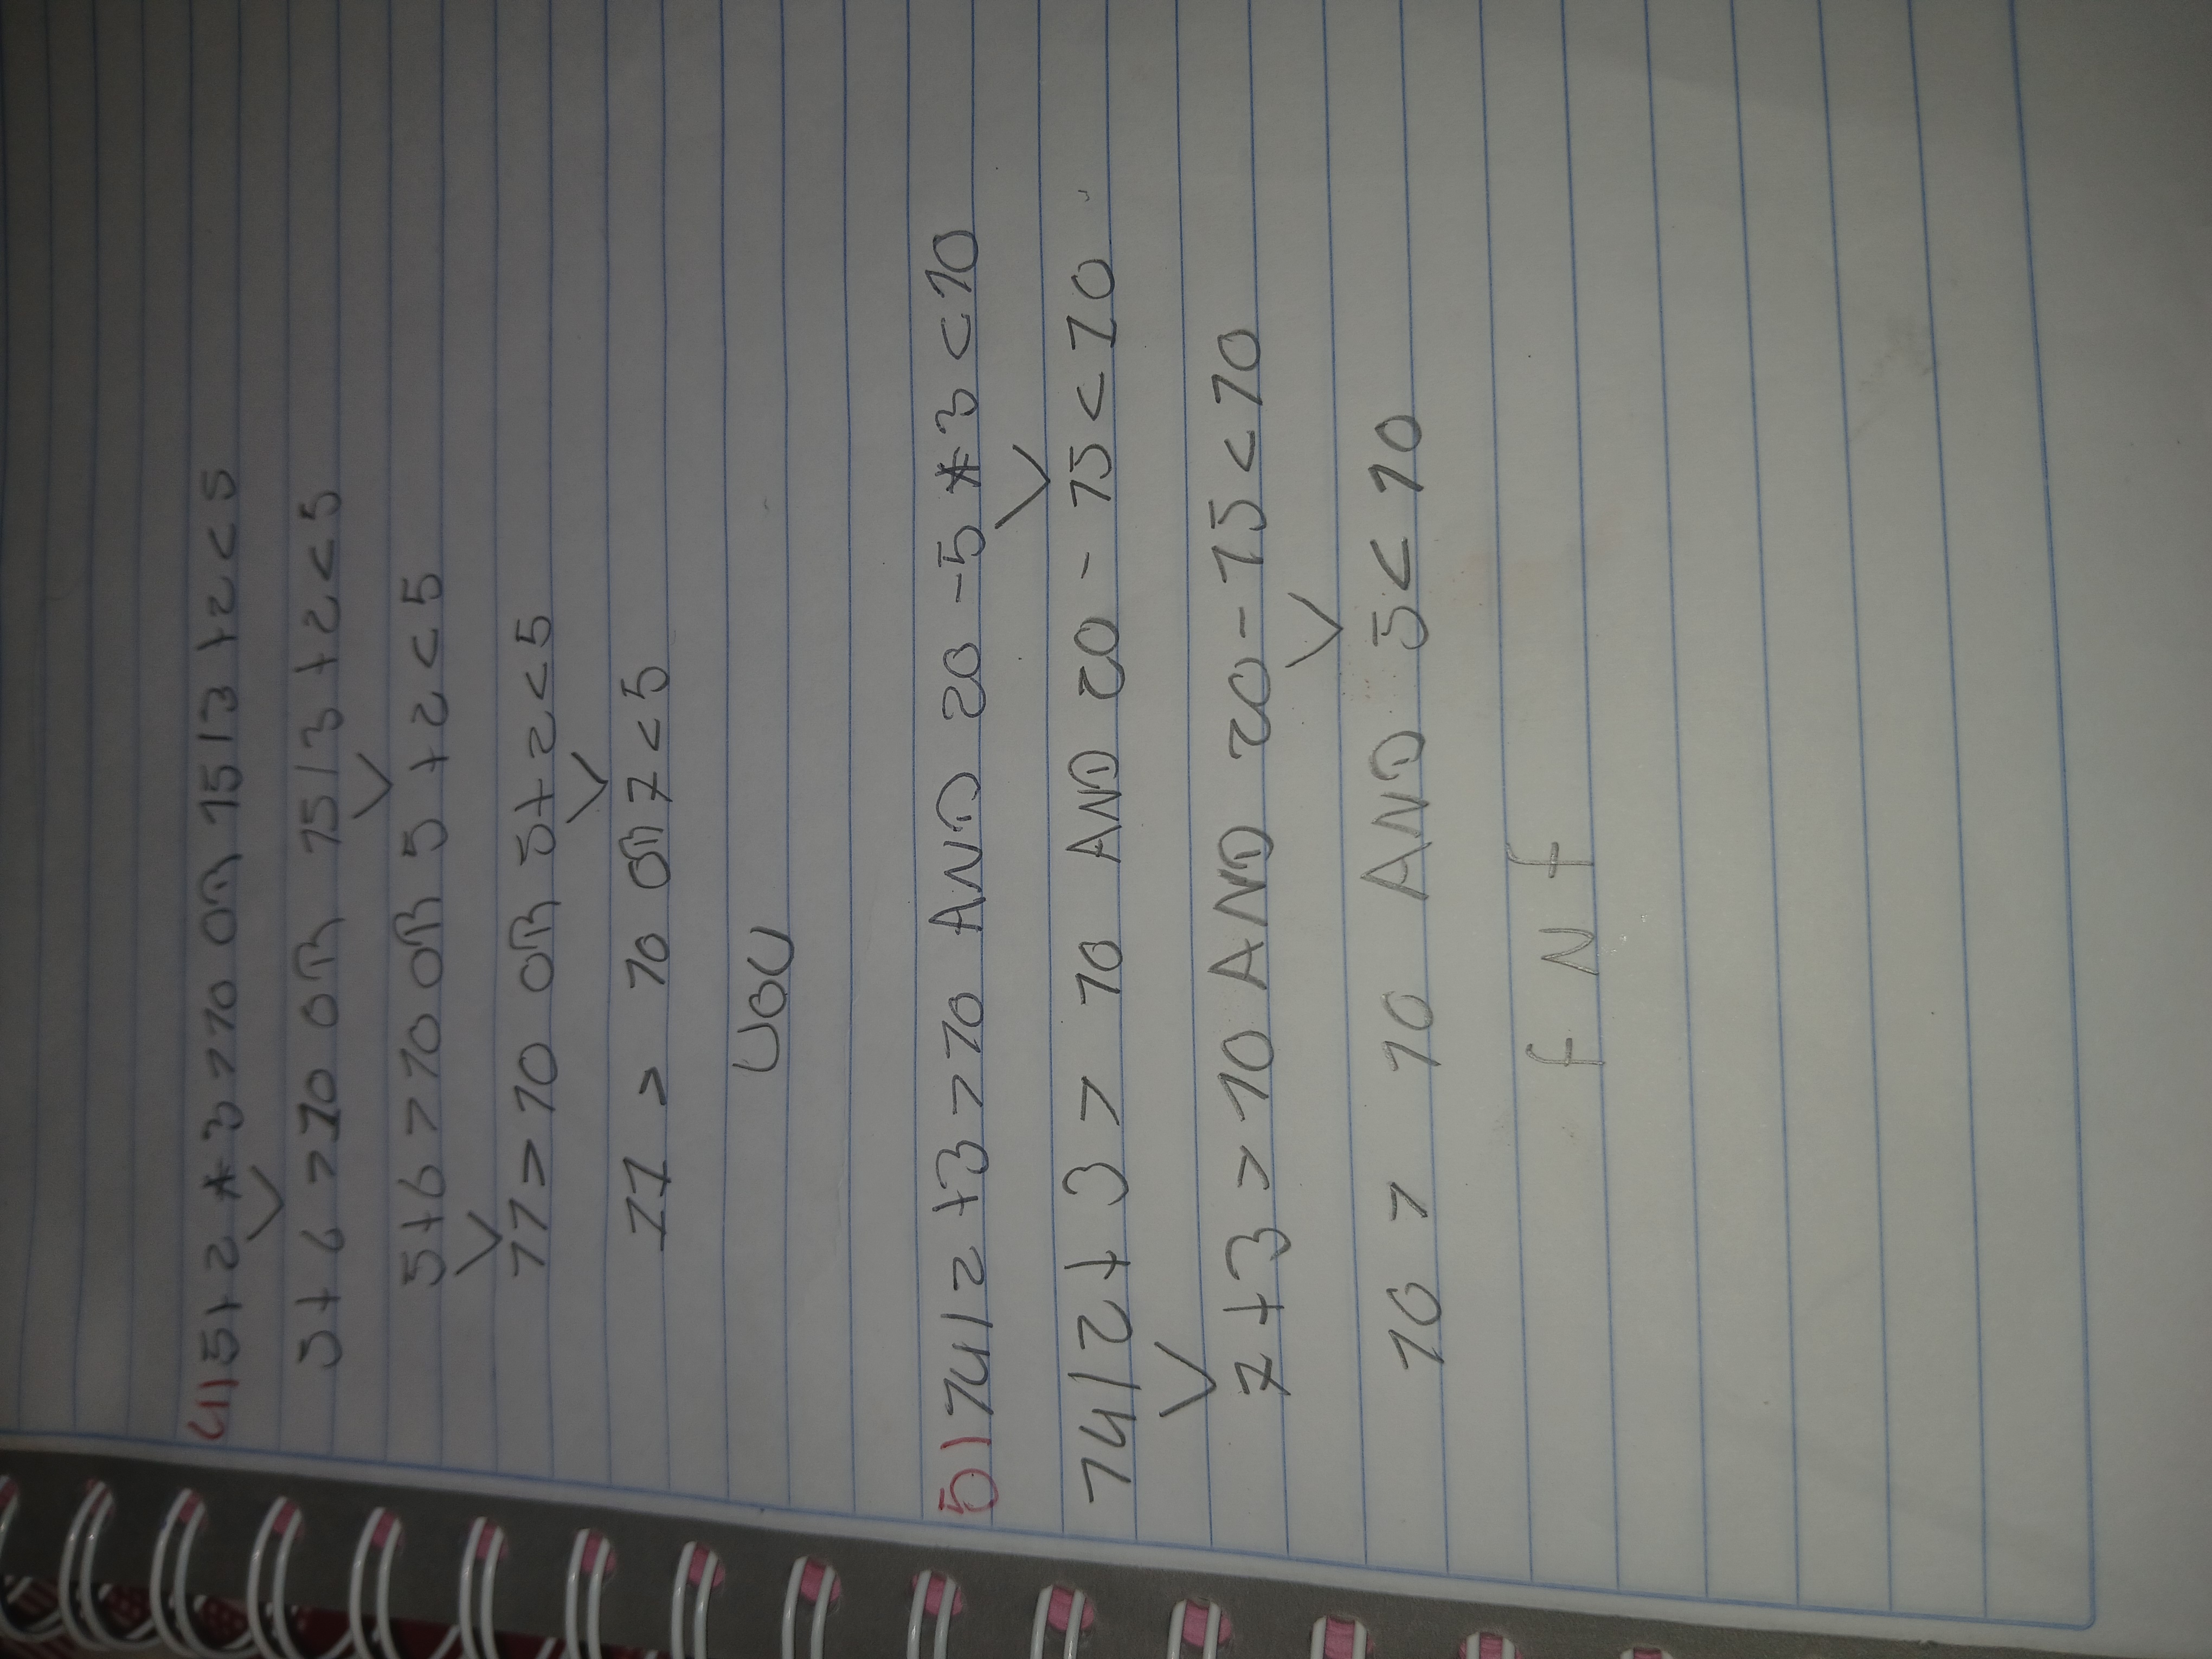 4) 5 + 2 * 3 > 10 OR 15 / 3 + 2 < 5
5 + 6 > 10 OR 15 / 3 + 2 < 5
5 + 6 > 10 OR 5 + 2 < 5
11 > 10 OR 5 + 2 < 5
11 > 10 OR 7 < 5
5) 14 / 2 + 3 > 10 AND 20 - 5 * 3 < 10
14 / 2 + 3 > 10 AND 20 - 15 < 10
7 + 3 > 10 AND 20 - 15 < 10
10 > 10 AND 5 < 10
F N F